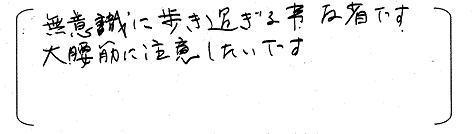 無意識に歩き過ぎる事反省です
大腰筋に注意したいです